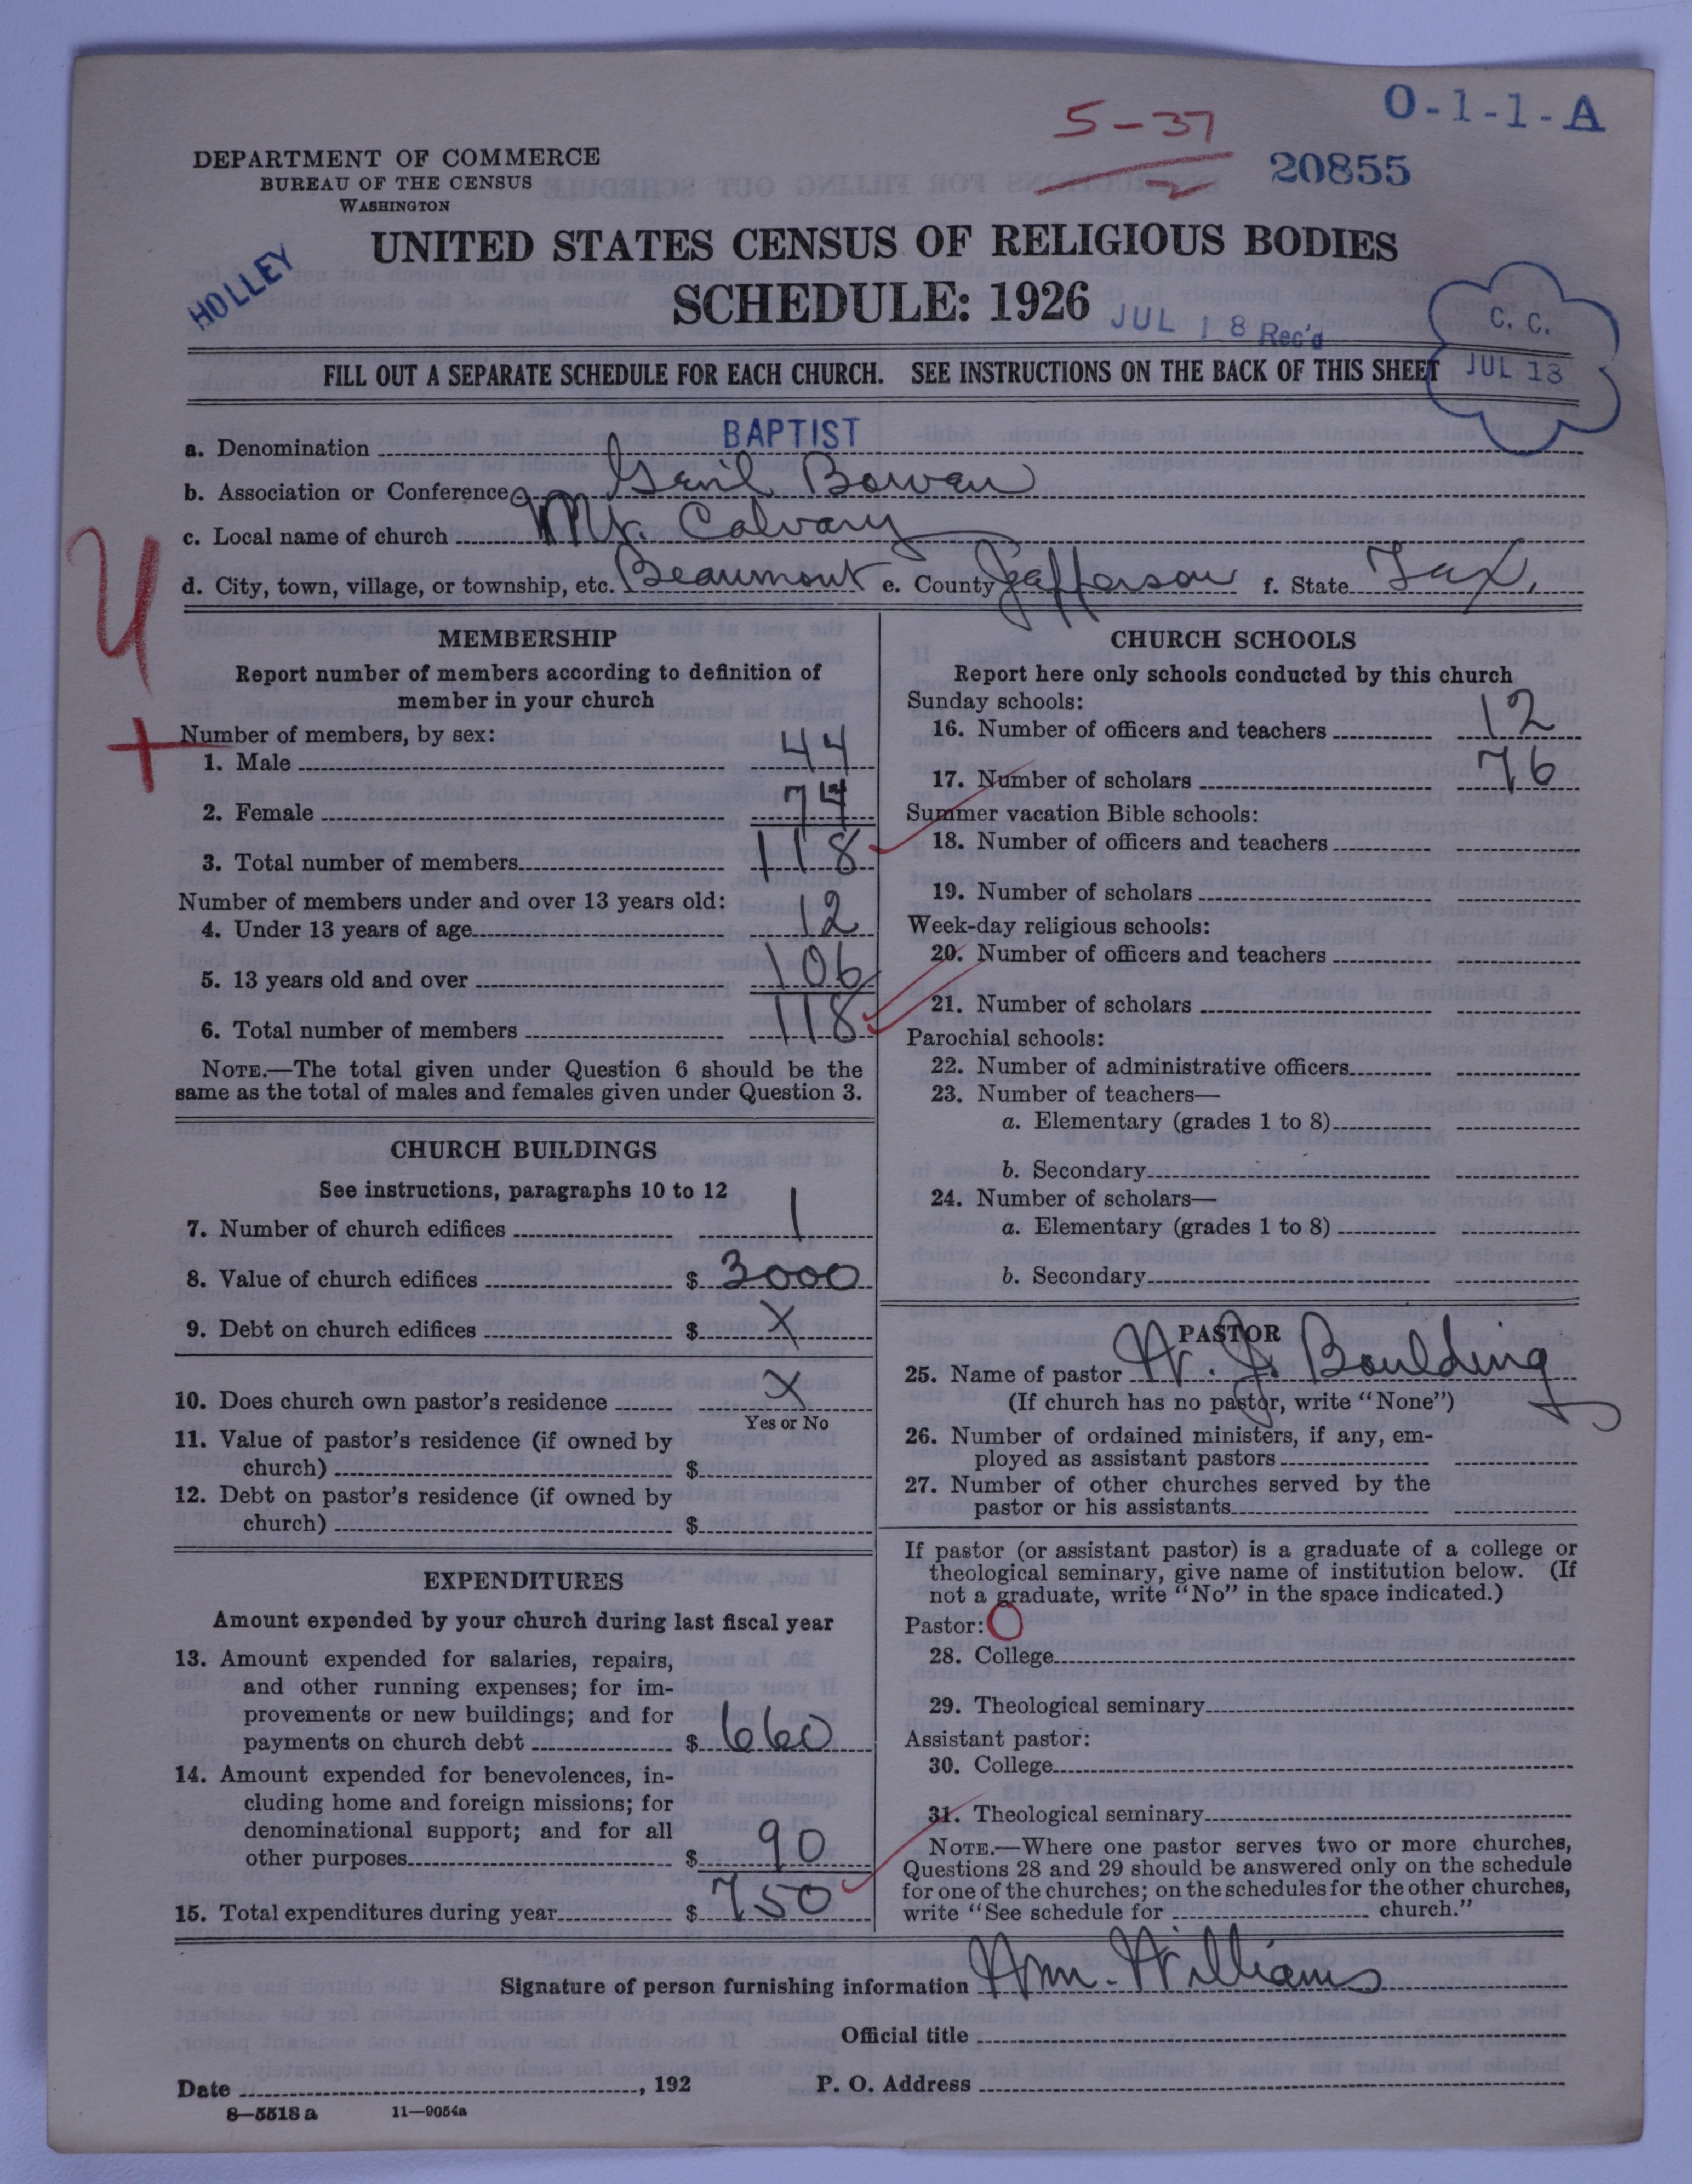 O-1-1-A
5-37
2
20855
DEPARTMENT OF COMMERCE
BUREAU OF THE CENSUS
WASHINGTON
HOLLEY
UNITED STATES CENSUS OF RELIGIOUS BODIES
SCHEDULE: 1926
JUL 18 Rec'd
C. C.
JUL 13
FILL OUT A SEPARATE SCHEDULE FOR EACH CHURCH. SEE INSTRUCTIONS ON THE BACK OF THIS SHEET
a. Denomination BAPTIST
b. Association or Conference Bowen
c. Local name of church Mt. Calvary
d. City, town, village, or township, etc. Beaumont e. County Jefferson f. State Tex.
MEMBERSHIP
Report number of members according to definition of
member in your church
Number of members, by sex:
1. Male 44
2. Female 74
3. Total number of members 118
Number of members under and over 13 years old:
4. Under 13 years of age 12
5. 13 years old and over 106
6. Total number of members 118
NOTE.—The total given under Question 6 should be the
same as the total of males and females given under Question 3.
CHURCH BUILDINGS
See instructions, paragraphs 10 to 12
7. Number of church edifices 1
8. Value of church edifices $ 3000
9. Debt on church edifices $ X
10. Does church own pastor's residence X
Yes or No
11. Value of pastor's residence (if owned by
church) $
12. Debt on pastor's residence (if owned by
church) $
EXPENDITURES
Amount expended by your church during last fiscal year
13. Amount expended for salaries, repairs,
and other running expenses; for im-
provements or new buildings; and for
payments on church debt $ 660
14. Amount expended for benevolences, in-
cluding home and foreign missions; for
denominational support; and for all
other purposes $ 90
15. Total expenditures during year $ 750
CHURCH SCHOOLS
Report here only schools conducted by this church
Sunday schools:
16. Number of officers and teachers 12
17. Number of scholars 76
Summer vacation Bible schools:
18. Number of officers and teachers
19. Number of scholars
Week-day religious schools:
20. Number of officers and teachers
21. Number of scholars
Parochial schools:
22. Number of administrative officers
23. Number of teachers—
a. Elementary (grades 1 to 8)
b. Secondary
24. Number of scholars—
a. Elementary (grades 1 to 8)
b. Secondary
PASTOR
25. Name of pastor W. J. Boulding
(If church has no pastor, write "None")
26. Number of ordained ministers, if any, em-
ployed as assistant pastors
27. Number of other churches served by the
pastor or his assistants
If pastor (or assistant pastor) is a graduate of a college or
theological seminary, give name of institution below. (If
not a graduate, write "No" in the space indicated.)
Pastor: O
28. College
29. Theological seminary
Assistant pastor:
30. College
31. Theological seminary
NOTE.—Where one pastor serves two or more churches,
Questions 28 and 29 should be answered only on the schedule
for one of the churches; on the schedules for the other churches,
write "See schedule for church."
Signature of person furnishing information Wm. Williams
Official title
Date , 192
P. O. Address
8—5518 a 11—9054a